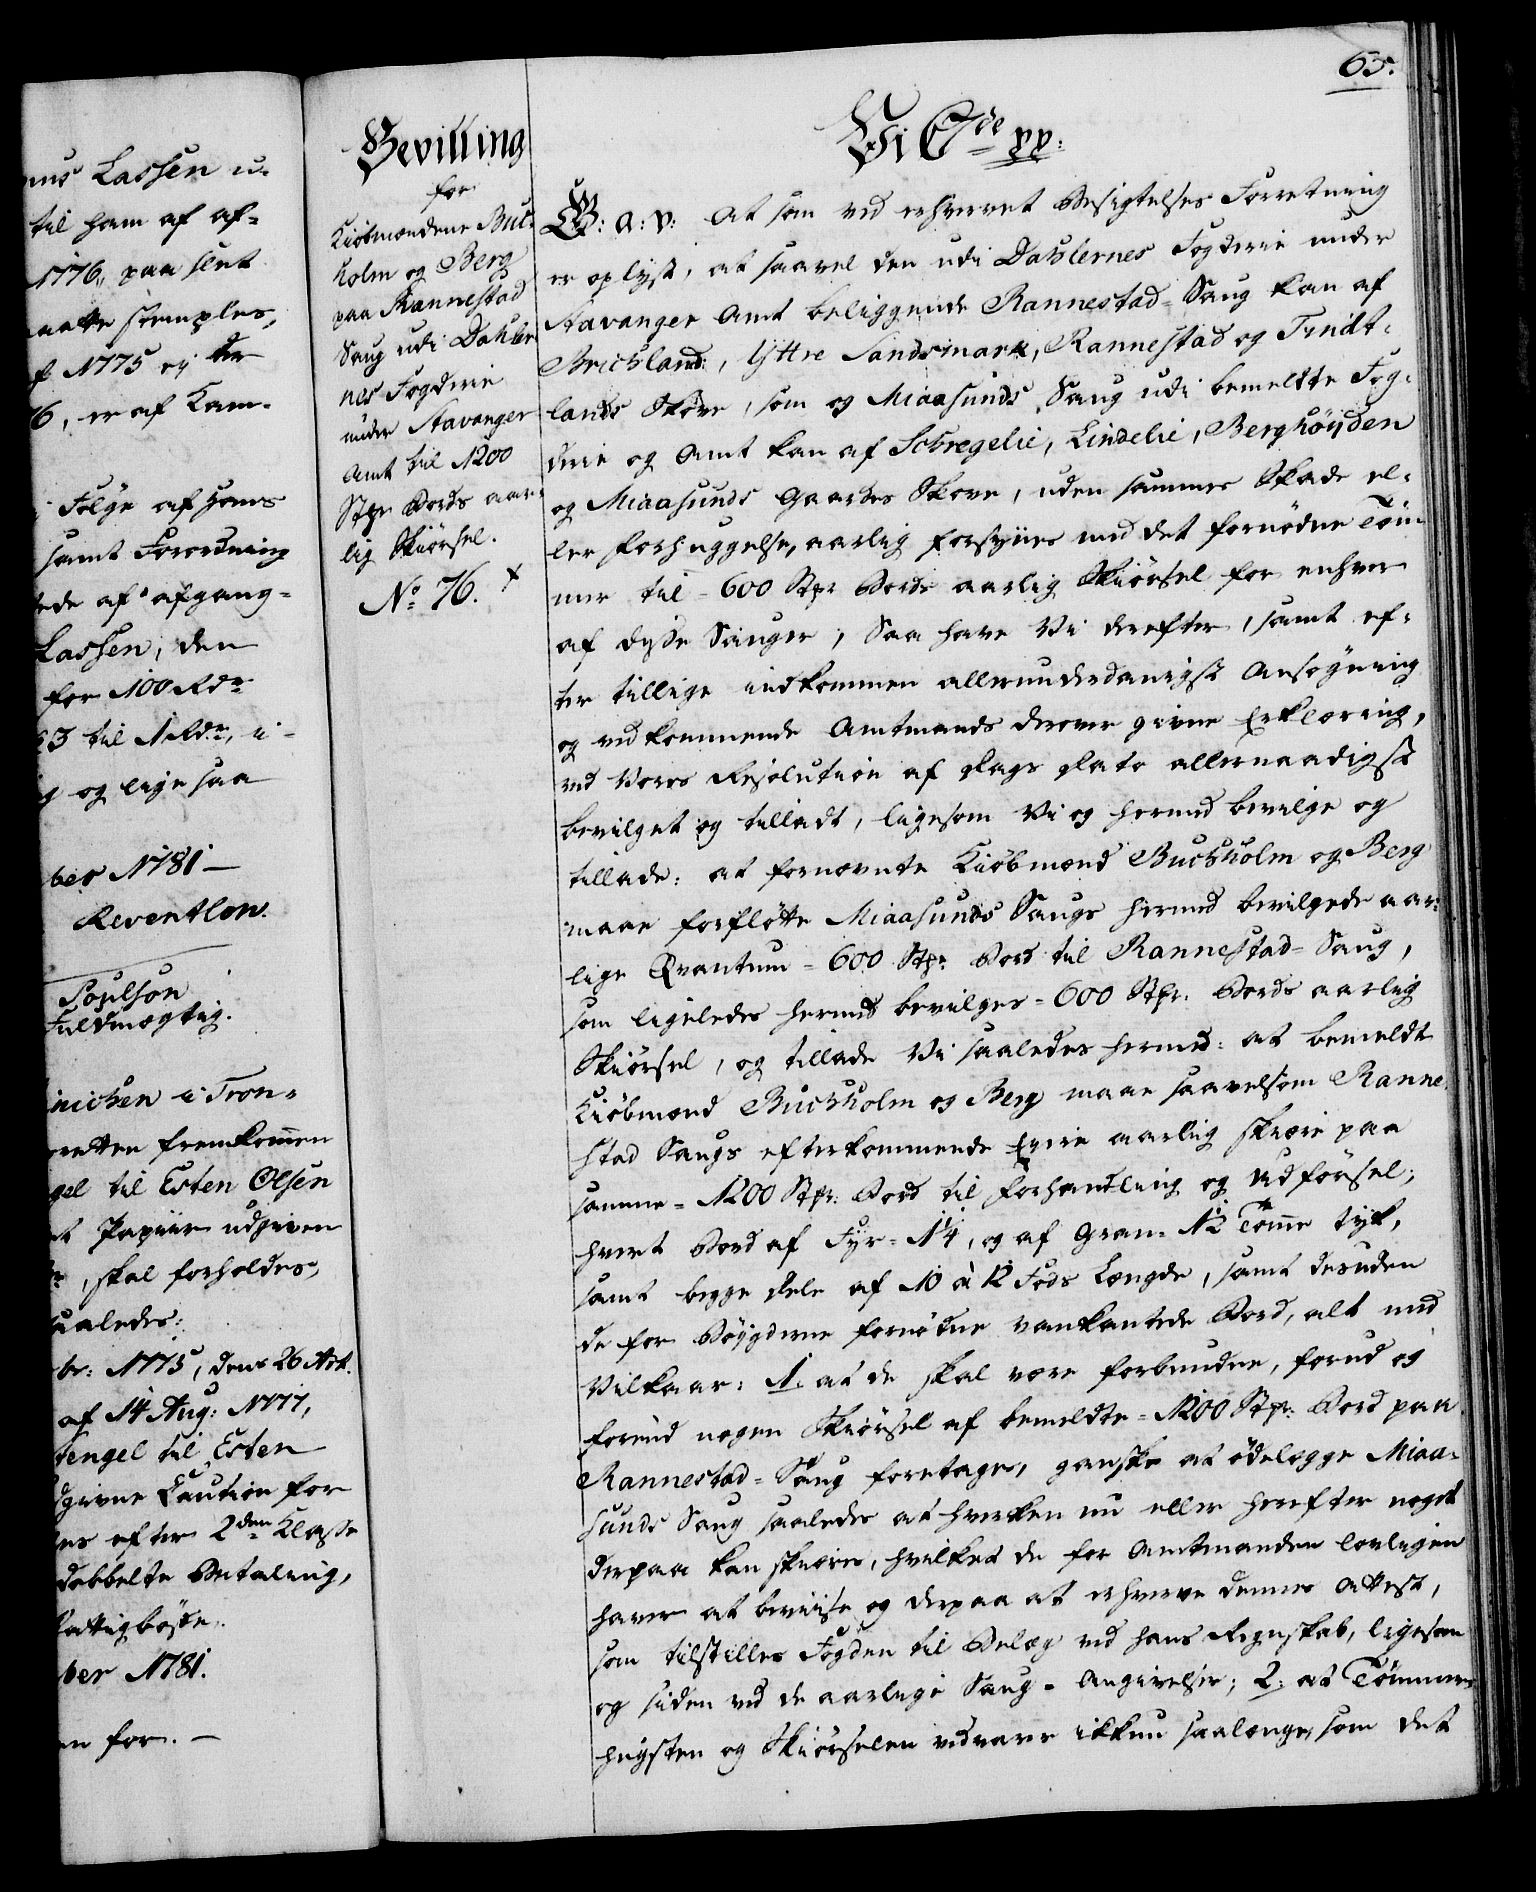 65.
mus Lassen u-
til ham af af-
1776, paa slet
maatte stemples,
f 1775 ej der
6, er af Kam-
Følge af hans
samt Forordning
rede af afgang-
Lassen, den
for 100 Rdr
3 til 1 Rdr, i-
g og lige saa
ber 1781 —
Reventlow.
Poulson
Fuldmægtig.
inichen i Tron-
oretten fremkommen
gel til Esten Olsen
et Papiir udgiven
, skal forholdes,
saaledes:
br: 1775, dens 26 Art.
af 14 Aug: 1777,
tengel til Esten
dgivne Caution for
es efter 2den Classe
dobbelte Betaling,
Fattigbøsse.
ber 1781.
en for. —
Bevilling
for
Kiøbmændene Buch-
holm og Berg
paa Rannestad
Saug udi Dahler
nes Fogderie
under Stavanger
Amt til 1200
Stpr Bords aar-
lig Skiørsel.
No. 76. x
Vi C7de pp:
G: A: V: At som ved erhvervet Besigtelses Forretning
er oplyst, at saavel den udi Dahlernes Fogderie under
Stavanger Amt beliggende Rannestad-Saug kan af
Brichland, Yttre Sandsmark, Rannestad og Tendt-
lands Skove, som og Miaasunds Saug udi bemeldte Fog-
derie og Amt kan af Schregelie, Lindelie, Berghøyden
og Miaasunds Gaardes Skove, uden sammes Skade el-
ler Forhuggelse, aarlig forsynes med det fornødne Tøm-
mer til = 600 Stpr Bords aarlig Skiørsel for enhver
af disse Sauger, Saa have Vi derefter, samt ef-
ter tillige indkommen allerunderdanigst Ansøgning
og vedkommende Amtmands derover givne Erklæring,
ved Vores Resolution af Dags Dato allernaadigst
bevilget og tilladt, ligesom Vi og hermed bevilge og
tillade: at fornævnte Kiøbmænd Buchholm og Berg
maae forfløtte Miaasunds Saugs hermed bevilgede aar-
lige Qvantum = 600 Stpr Bord til Rannestad-Saug,
som ligeledes hermed bevilges = 600 Stpr. Bords aarlig
Skiørsel, og tillade Vi saaledes hermed: at bemeldte
Kiøbmænd Buchholm og Berg maae saavelsom Ranne-
stad Saugs efterkommende Eiere aarlig skiære paa
samme = 1200 Stpr: Bord til Forhandling og Udførsel;
hvert Bord af Fyr = 1¼, og af Gran = 1½ Tomme tyk,
samt begge Dele af 10 à 12 Fods Længde, samt desuden
de for Bøygderne fornødne vankantede Bord, alt med
Vilkaar: 1. at de skal være forbundne, forud og
forend nogen Skiørsel af bemeldte = 1200 Stpr: Bord paa
Rannestad-Saug foretages, ganske at ødelægge Miaa-
sunds Saug saaledes at hverken nu eller herefter noget
derpaa kan skiæres, hvilket de for Amtmanden lovligen
haver at beviise og derpaa at erhverve dennes Attest,
som tilstilles Fogden til Belæg ved hans Regnskab, ligesom
og siden ved de aarlige Saug-Angivelser; 2. at Tømmer-
hugsten og Skiørselen vedvarer ikkun saalænge, som det